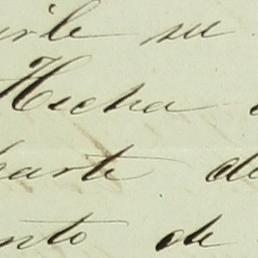 irle su
Hecha
parte de
nto de